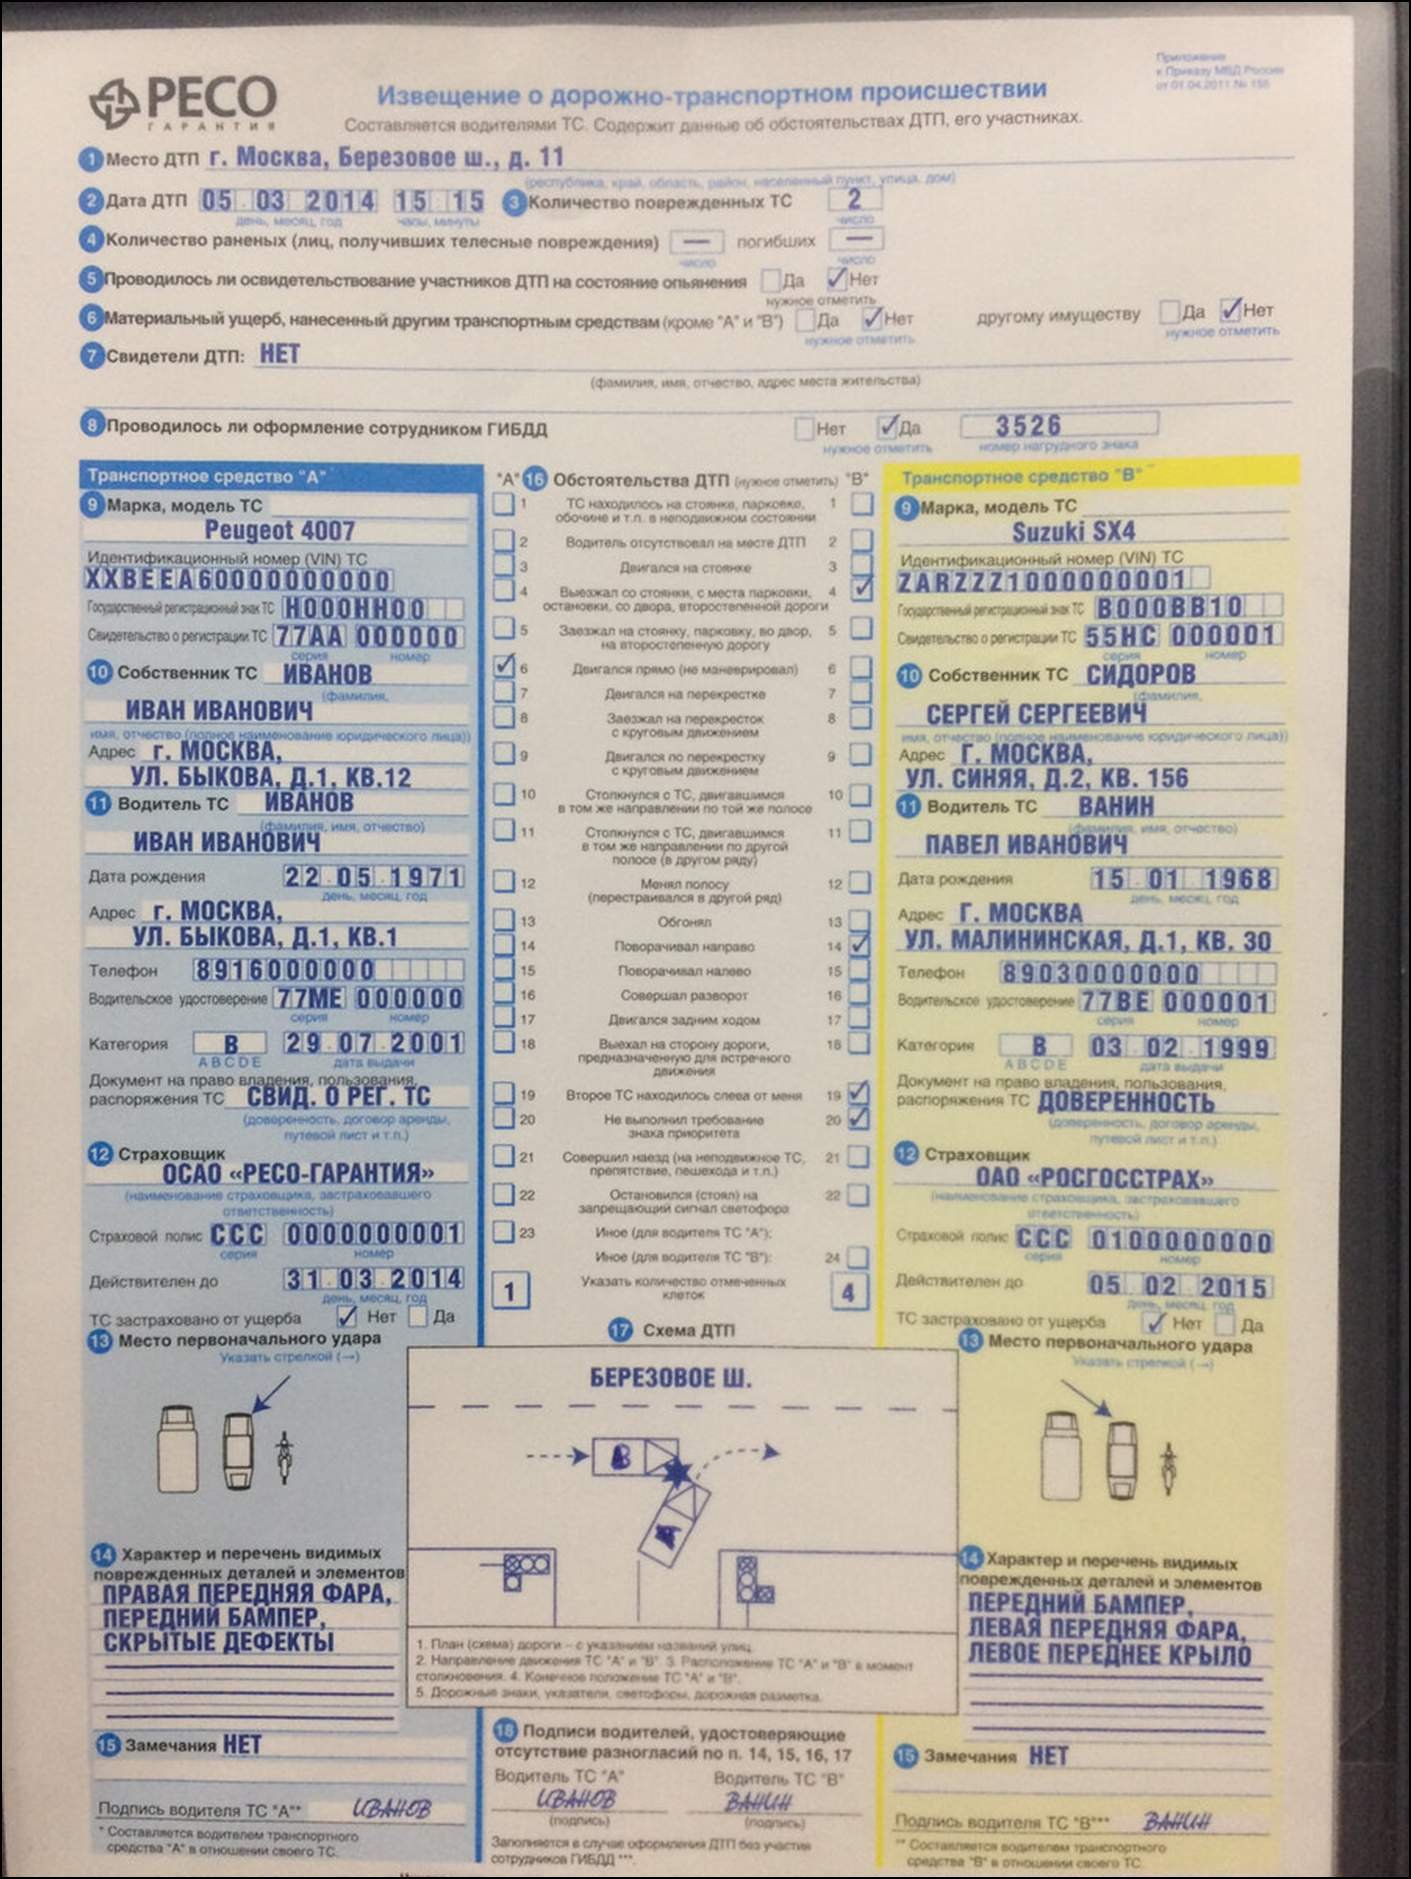 РЕСО
ГАРАНТИЯ
Приложение
к Приказу МВД России
от 01.04.2011 № 155
Извещение о дорожно-транспортном происшествии
Составляется водителями ТС. Содержит данные об обстоятельствах ДТП, его участниках.
1 Место ДТП г. Москва, Березовое ш., д. 11
(республика, край, область, район, населенный пункт, улица, дом)
2 Дата ДТП 05 03 2014 15 15 3 Количество поврежденных ТС 2
день, месяц, год часы, минуты число
4 Количество раненых (лиц, получивших телесные повреждения) — погибших —
число число
5 Проводилось ли освидетельствование участников ДТП на состояние опьянения Да ✓ Нет
нужное отметить
6 Материальный ущерб, нанесенный другим транспортным средствам (кроме "А" и "В") Да ✓ Нет другому имуществу Да ✓ Нет
нужное отметить нужное отметить
7 Свидетели ДТП: НЕТ
(фамилия, имя, отчество, адрес места жительства)
8 Проводилось ли оформление сотрудником ГИБДД Нет ✓ Да 3526
нужное отметить номер нагрудного знака
Транспортное средство "А"
9 Марка, модель ТС
Peugeot 4007
Идентификационный номер (VIN) ТС
XXBEEA60000000000
Государственный регистрационный знак ТС Н000НН00
Свидетельство о регистрации ТС 77АА 000000
серия номер
10 Собственник ТС ИВАНОВ
(фамилия,
ИВАН ИВАНОВИЧ
имя, отчество (полное наименование юридического лица))
Адрес г. МОСКВА,
УЛ. БЫКОВА, Д.1, КВ.12
11 Водитель ТС ИВАНОВ
(фамилия, имя, отчество)
ИВАН ИВАНОВИЧ
Дата рождения 22 05 1971
день, месяц, год
Адрес г. МОСКВА,
УЛ. БЫКОВА, Д.1, КВ.1
Телефон 8916000000
Водительское удостоверение 77МЕ 000000
серия номер
Категория В 29 07 2001
A B C D E дата выдачи
Документ на право владения, пользования,
распоряжения ТС СВИД. О РЕГ. ТС
(доверенность, договор аренды,
путевой лист и т.п.)
12 Страховщик
ОСАО «РЕСО-ГАРАНТИЯ»
(наименование страховщика, застраховавшего
ответственность)
Страховой полис ССС 0000000001
серия номер
Действителен до 31 03 2014
день, месяц, год
ТС застраховано от ущерба ✓ Нет Да
13 Место первоначального удара
Указать стрелкой (→)
14 Характер и перечень видимых
поврежденных деталей и элементов
ПРАВАЯ ПЕРЕДНЯЯ ФАРА,
ПЕРЕДНИЙ БАМПЕР,
СКРЫТЫЕ ДЕФЕКТЫ
15 Замечания НЕТ
Подпись водителя ТС "А"* ИВАНОВ
* Составляется водителем транспортного
средства "А" в отношении своего ТС.
"А" 16 Обстоятельства ДТП (нужное отметить) "В"
1 ТС находилось на стоянке, парковке, 1
обочине и т.п. в неподвижном состоянии
2 Водитель отсутствовал на месте ДТП 2
3 Двигался на стоянке 3
4 Выезжал со стоянки, с места парковки, 4 ✓
остановки, со двора, второстепенной дороги
5 Заезжал на стоянку, парковку, во двор, 5
на второстепенную дорогу
✓ 6 Двигался прямо (не маневрировал) 6
7 Двигался на перекрестке 7
8 Заезжал на перекресток 8
с круговым движением
9 Двигался по перекрестку 9
с круговым движением
10 Столкнулся с ТС, двигавшимся 10
в том же направлении по той же полосе
11 Столкнулся с ТС, двигавшимся 11
в том же направлении по другой
полосе (в другом ряду)
12 Менял полосу 12
(перестраивался в другой ряд)
13 Обгонял 13
14 Поворачивал направо 14 ✓
15 Поворачивал налево 15
16 Совершал разворот 16
17 Двигался задним ходом 17
18 Выехал на сторону дороги, 18
предназначенную для встречного
движения
19 Второе ТС находилось слева от меня 19 ✓
20 Не выполнил требование 20 ✓
знака приоритета
21 Совершил наезд (на неподвижное ТС, 21
препятствие, пешехода и т.п.)
22 Остановился (стоял) на 22
запрещающий сигнал светофора
23 Иное (для водителя ТС "А"):
Иное (для водителя ТС "В"): 24
1 Указать количество отмеченных 4
клеток
17 Схема ДТП
БЕРЕЗОВОЕ Ш.
В
А
1. План (схема) дороги – с указанием названий улиц.
2. Направление движения ТС "А" и "В". 3. Расположение ТС "А" и "В" в момент
столкновения. 4. Конечное положение ТС "А" и "В".
5. Дорожные знаки, указатели, светофоры, дорожная разметка.
18 Подписи водителей, удостоверяющие
отсутствие разногласий по п. 14, 15, 16, 17
Водитель ТС "А" Водитель ТС "В"
ИВАНОВ ВАНИН
(подпись) (подпись)
Заполняется в случае оформления ДТП без участия
сотрудников ГИБДД ***.
Транспортное средство "В"
9 Марка, модель ТС
Suzuki SX4
Идентификационный номер (VIN) ТС
ZARZZZ1000000001
Государственный регистрационный знак ТС В000ВВ10
Свидетельство о регистрации ТС 55НС 000001
серия номер
10 Собственник ТС СИДОРОВ
(фамилия,
СЕРГЕЙ СЕРГЕЕВИЧ
имя, отчество (полное наименование юридического лица))
Адрес Г. МОСКВА,
УЛ. СИНЯЯ, Д.2, КВ. 156
11 Водитель ТС ВАНИН
(фамилия, имя, отчество)
ПАВЕЛ ИВАНОВИЧ
Дата рождения 15 01 1968
день, месяц, год
Адрес Г. МОСКВА
УЛ. МАЛИНИНСКАЯ, Д.1, КВ. 30
Телефон 89030000000
Водительское удостоверение 77ВЕ 000001
серия номер
Категория В 03 02 1999
A B C D E дата выдачи
Документ на право владения, пользования,
распоряжения ТС ДОВЕРЕННОСТЬ
(доверенность, договор аренды,
путевой лист и т.п.)
12 Страховщик
ОАО «РОСГОССТРАХ»
(наименование страховщика, застраховавшего
ответственность)
Страховой полис ССС 0100000000
серия номер
Действителен до 05 02 2015
день, месяц, год
ТС застраховано от ущерба ✓ Нет Да
13 Место первоначального удара
Указать стрелкой (→)
14 Характер и перечень видимых
поврежденных деталей и элементов
ПЕРЕДНИЙ БАМПЕР,
ЛЕВАЯ ПЕРЕДНЯЯ ФАРА,
ЛЕВОЕ ПЕРЕДНЕЕ КРЫЛО
15 Замечания НЕТ
Подпись водителя ТС "В"** ВАНИН
** Составляется водителем транспортного
средства "В" в отношении своего ТС.